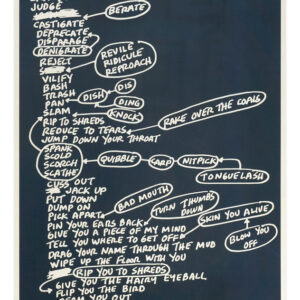 JUDGE
BERATE
CASTIGATE
DEPRECATE
DISPARAGE
DENIGRATE
REVILE
RIDICULE
REPROACH
REJECT
VILIFY
BASH
TRASH
DISH
DIS
PAN
DING
SLAM
KNOCK
RIP TO SHREDS
RAKE OVER THE COALS
REDUCE TO TEARS
JUMP DOWN YOUR THROAT
SPANK
SCOLD
QUIBBLE
CARP
NITPICK
SCORCH
SCATHE
TONGUELASH
CUSS OUT
JACK UP
PUT DOWN
BAD MOUTH
DUMP ON
TURN THUMBS DOWN
PICK APART
SKIN YOU ALIVE
PIN YOUR EARS BACK
GIVE YOU A PIECE OF MY MIND
TELL YOU WHERE TO GET OFF
BLOW YOU OFF
DRAG YOUR NAME THROUGH THE MUD
WIPE UP THE FLOOR WITH YOU
RIP YOU TO SHREDS
GIVE YOU THE HAIRY EYEBALL
FLIP YOU THE BIRD
YOU OUT